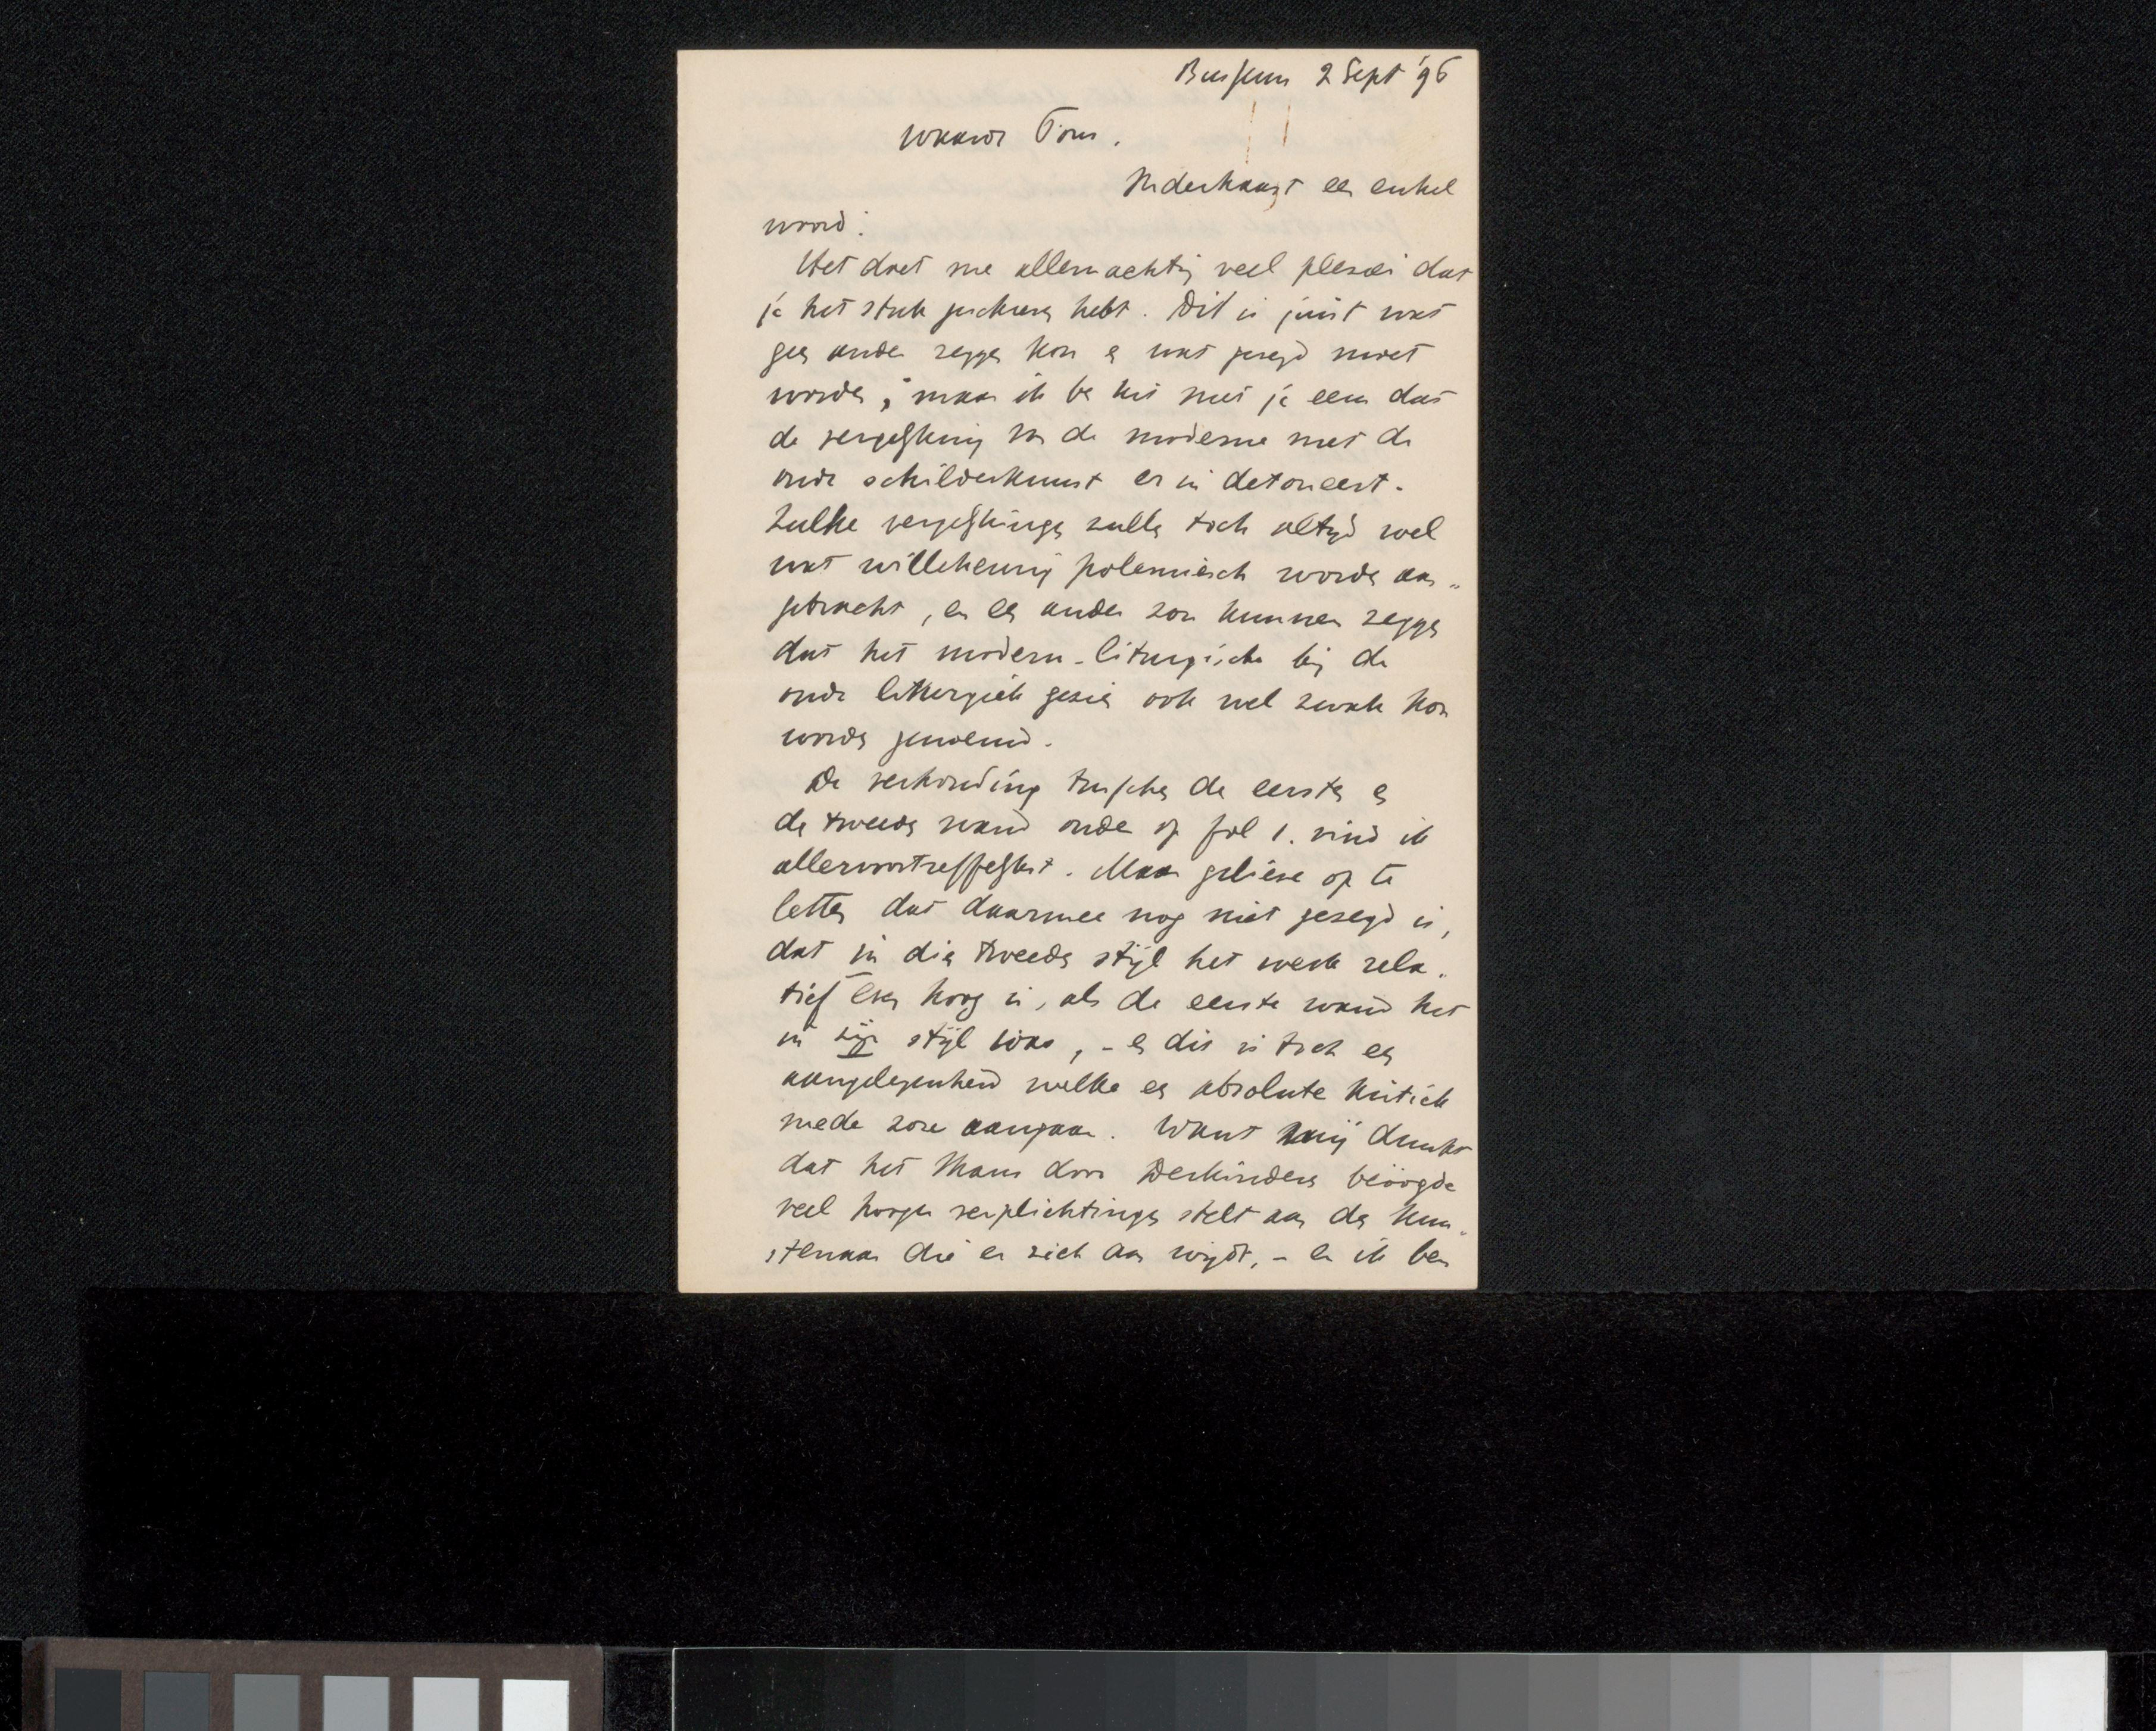 Bussum 2 Sept '96
Waarde Tom.
Inderhaast een enkel
woord:
Het doet me allemachtig veel plezier dat
je het stuk geschreven hebt. Dit is juist wat
geen ander zeggen kon en wat gezegd moet
worden; maar ik ben het met je eens dat
de vergelijking van de moderne met de
oude schilderkunst er in detoneert.
Zulke vergelijkingen zullen toch altijd wel
wat willekeurig polemiesch worden aan-
gebracht, en een ander zou kunnen zeggen
dat het modern-liturgische bij de
oude lithurgiek gezien ook wel zwak kon
worden genoemd.
De verhouding tusschen de eersten en
de tweeden wand onder op fol 1. vind ik
allervoortreffelijkst. Maar gelieve op te
letten dat daarmee nog niet gezegd is,
dat in dien tweeden stijl het werk rela-
tief even hoog is, als de eerste wand het
in zijn stijl was, - en dit is toch een
aangelegenheid welke een absolute kritiek
mede zou aangaan. Want mij dunkt
dat het thans door Derkinderen beöogde
veel hooger verplichtingen stelt aan den kun-
stenaar die er zich aan wijdt, - en ik ben